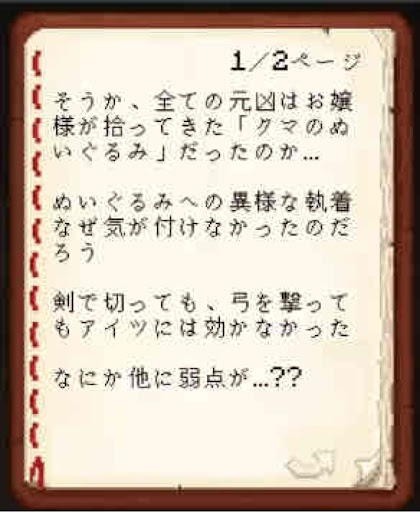 1/2ページ
そうか、全ての元凶はお嬢
様が拾ってきた「クマのぬ
いぐるみ」だったのか…
ぬいぐるみへの異様な執着
なぜ気が付けなかったのだ
ろう
剣で切っても、弓を撃って
もアイツには効かなかった
なにか他に弱点が…??